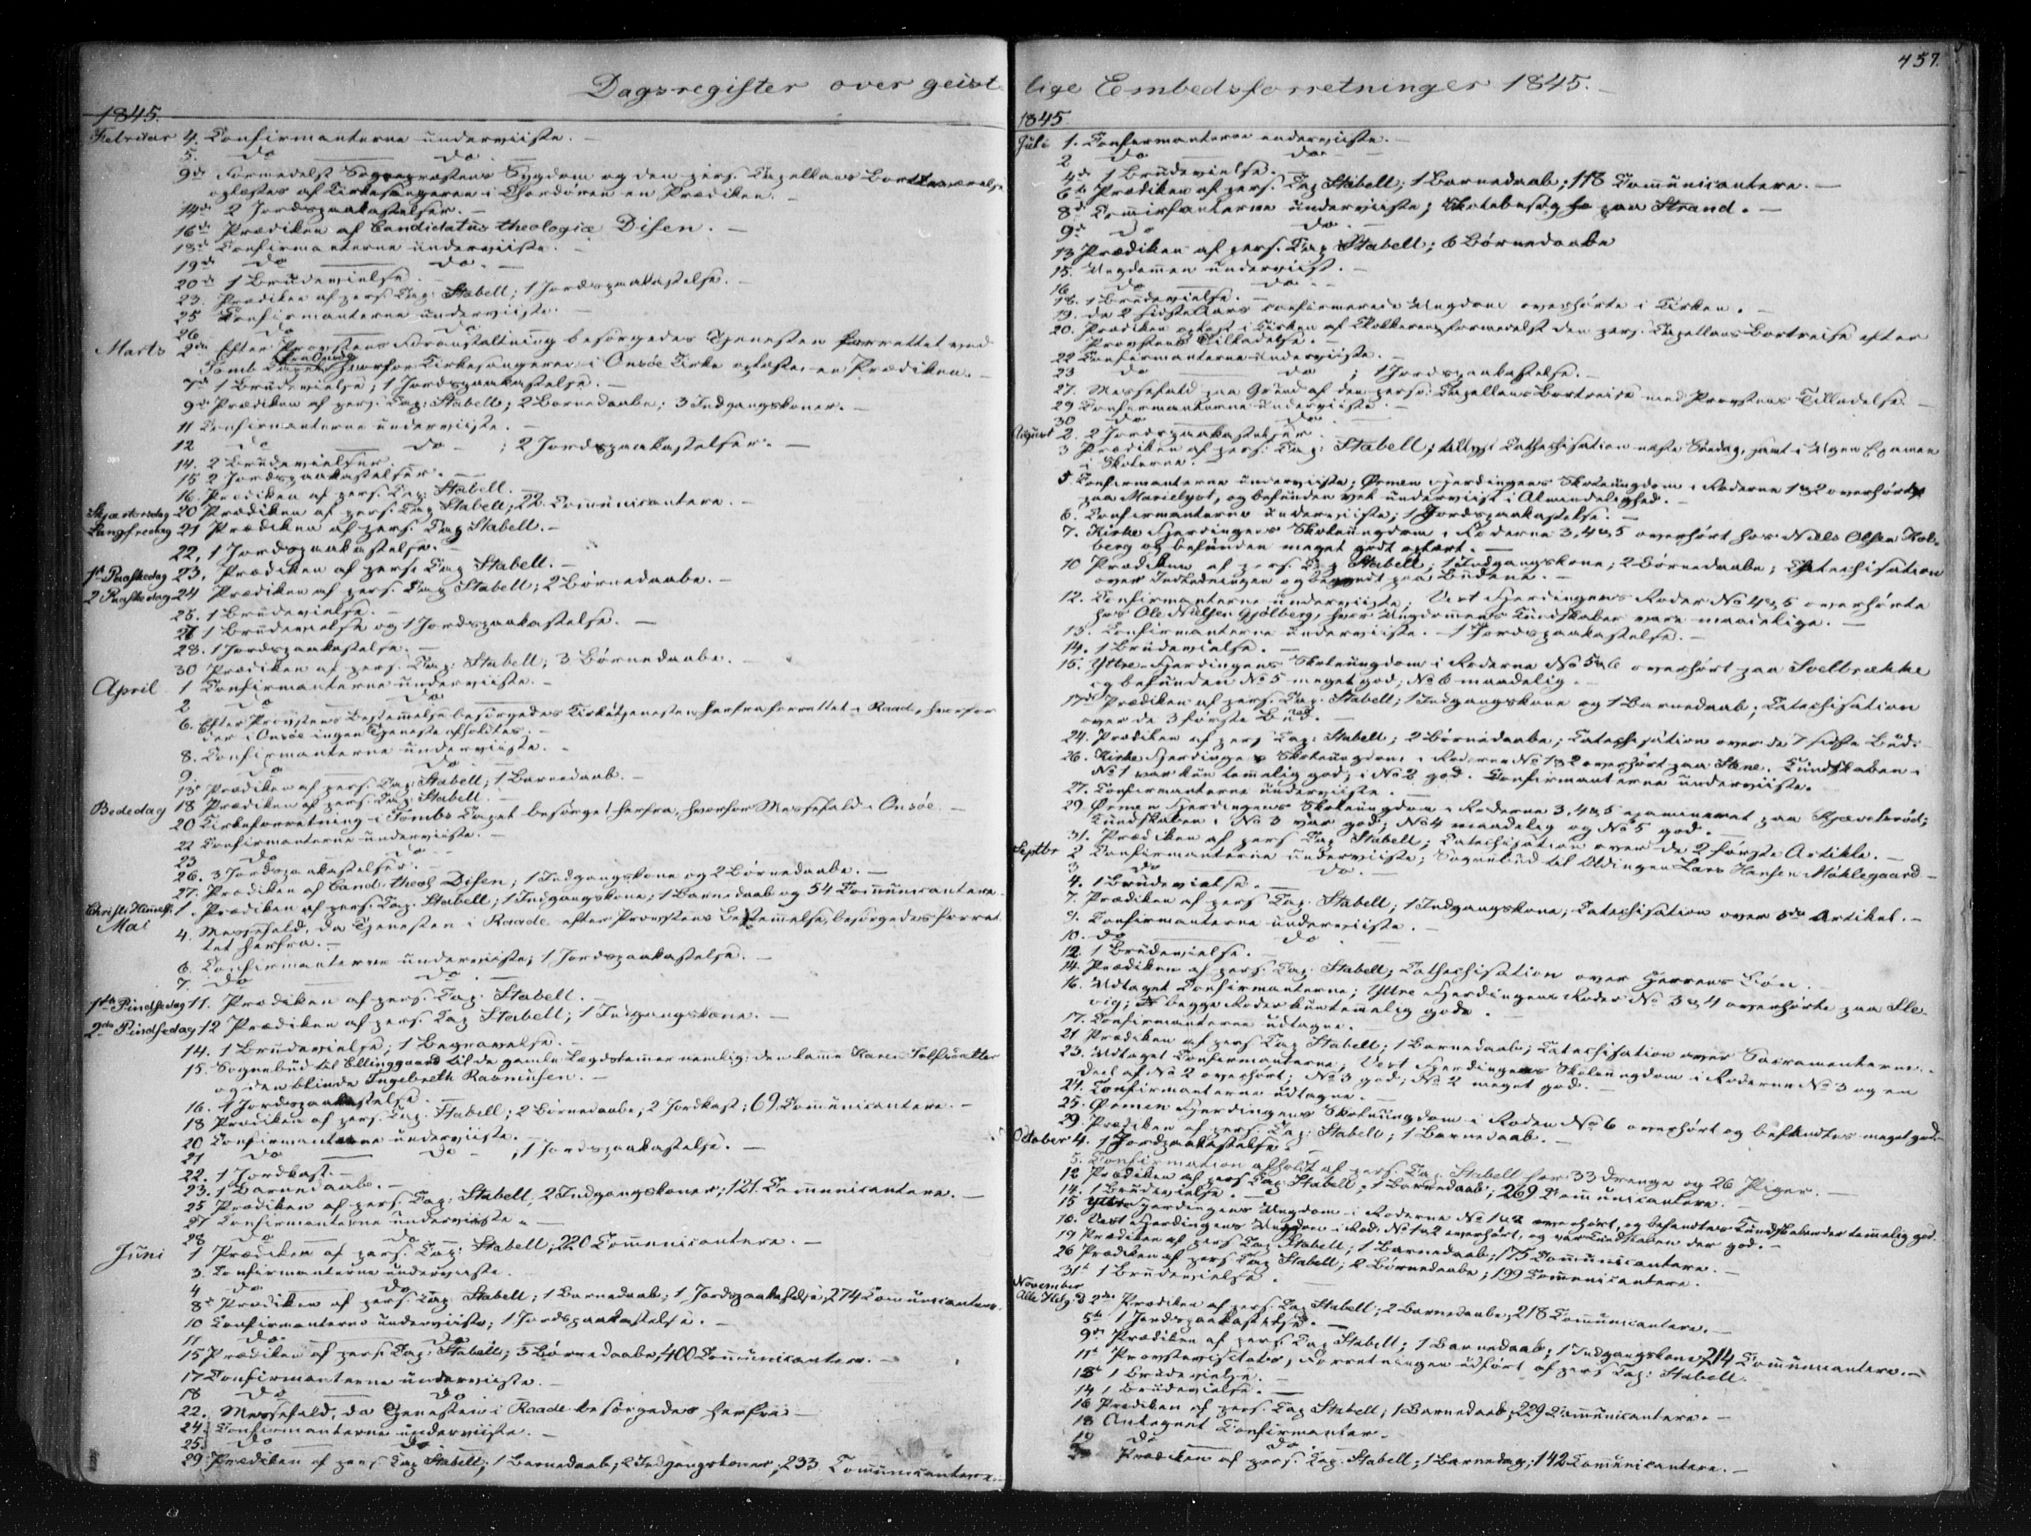 457.
Dagsregister over geist-
1845.
Februar 4. Confirmanterne underviiste. —
5. do — do —
9de Formedelst Sognepræstens Sygdom og den pers. Capellans Bortreise
oplæstes af Kirkesangeren i Chordøren en Prædiken. —
14de 2 Jordspaakastelser. —
16de Prædiken af Candidatus theologiæ Disen. —
18de Confirmanterne underviiste. —
19de do — do. —
20de 1 Brudevielse. —
23. Prædiken af pers. Cap: Stabell; 1 Jordspaakastelse. —
25 Confirmanterne underviiste. —
26. do — do
Marts 2den Efter Provstens Foranstaltning besørgedes Tjenesten forrettet ved
Tomb hvorfor Kirkesangeren i Onsøe Kirke oplæste en Prædiken. —
7de 1 Brudevielse; 1 Jordspaakastelse. —
9de Prædiken af pers. Cap: Stabell; 2 Børnedaabe; 3 Indgangskoner. —
11 Confirmanterne underviiste. —
12 do — do — ; 2 Jordspaakastelser. —
14. 2 Brudevielser.
15 2 Jordspaakastelser. —
16. Prædiken af pers. Cap. Stabell. —
Skjærtorsdag 20 Prædiken af pers. Cap Stabell; 22 Communicantere. —
Langfredag 21 Prædiken af pers. Cap Stabell. —
22. 1 Jordspaakastelse. —
1ste Paaskedag 23. Prædiken af pers. Cap Stabell. —
2 Paaskedag 24 Prædiken af pers. Cap Stabell; 2 Børnedaabe. —
25. 1 Brudevielse. —
27 1 Brudevielse og 1 Jordspaakastelse. —
28. 1 Jordspaakastelse. —
30 Prædiken af pers. Cap: Stabell; 3 Børnedaabe. —
April 1 Confirmanterne underviiste. —
2 do — do
6. Efter Provstens Bestemmelse besørgedes Kirketjenesten herfra forrettet i Raade, hvorfor
der i Onsøe ingen Tjeneste afholdtes. —
8. Confirmanterne underviiste. —
9. do — do —
13 Prædiken af pers. Cap: Stabell; 1 Barnedaab. —
Bededag 18 Prædiken af pers. Cap. Stabell. —
20 Kirkeforretning i Tombs Capel besørget herfra, hvorfor Messefald i Onsøe. —
22 Confirmanterne underviiste. —
23 do — do —
26. 3 Jordspaakastelser. —
27. Prædiken af Cand. theol. Disen; 1 Indgangskone og 2 Børnedaabe. —
Christi Himmelf. 1. Prædiken af pers. Cap. Stabell; 1 Indgangskone; 1 Barnedaab og 54 Communicantere.
Mai 4. Messefald, da Tjenesten i Raade efter Provstens Bestemmelse besørgedes forret-
tet herfra. —
6. Confirmanterne underviiste; 1 Jordspaakastelse. —
7. do — do —
1ste Pindsedag 11. Prædiken af pers. Cap. Stabell. —
2den Pindsedag 12 Prædiken af pers. Cap Stabell; 1 Indgangskone. —
14. 1 Brudevielse; 1 Begravelse. —
15. Sognebud til Ellinggaard til de gamle Lægdslemmer nemlig: den lamme Karen
og den blinde Ingebreth Rasmusen. —
16. 1 Jordspaakastelse. —
18 Prædiken af pers. Cap. Stabell; 2 Børnedaabe, 2 Jordkast; 69 Communicantere. —
20 Confirmanterne underviiste. —
21 do — do — ; 1 Jordspaakastelse. —
22. 1 Jordkast. —
23. 1 Barnedaab. —
25 Prædiken af pers. Cap. Stabell, 2 Indgangskoner; 121 Communicantere. —
27 Confirmanterne underviiste. —
28 do — do
Juni 1 Prædiken af pers. Cap: Stabell; 220 Communicantere. —
3. Confirmanterne underviiste.
4 do — do
8de Prædiken af pers. Cap. Stabell; 1 Barnedaab; 1 Jordspaakastelse; 274 Communicantere.
10 Confirmanterne underviiste; 1 Jordspaakastelse. —
11 do — do
15 Prædiken af pers. Cap. Stabell; 3 Børnedaabe, 400 Communicantere. —
17 Confirmanterne underviiste. —
18 do — do —
22. Messefald, da Tjenesten i Raade besørgedes herfra —
24. Confirmanterne underviiste. —
25. do — do
29. Prædiken af pers. Cap Stabell; 1 Barnedaab; 2 Indgangskoner; 233 Communicantere. —
lige Embedsforretninger 1845. —
1845
Juli 1. Confirmanterne underviiste. —
2 do — do. —
4de 1 Brudevielse. —
6te Prædiken af pers. Cap Stabell; 1 Barnedaab; 118 Communicantere. —
8de Confirmanterne underviiste; Skolebesøg paa Strand. —
9de do — do. —
13 Prædiken af pers. Cap. Stabell; 6 Børnedaabe
15. Ungdommen underviist. —
16. do — do. —
18. 1 Brudevielse. —
19. De 2 sidste Aars confirmerede Ungdom overhørte i Kirken. —
20. Prædiken oplæst i Kirken af Klokkeren, formedelst den pers. Capellans Bortreise efter
Provstens Tilladelse. —
22 Confirmanterne underviiste. —
23 do — do ; 1 Jordspaakastelse. —
27. Messefald paa Grund af den pers: Capellans Bortreise med Provstens Tilladelse. —
29 Confirmanterne underviiste. —
30 do — do. —
August 2. 2 Jordspaakastelser. —
3 Prædiken af pers. Cap: Stabell; Cathechisation næste Søndag, samt i Ugen Examen
i Skolerne. —
5 Confirmanterne underviiste; Ørmen Fjerdingens Skoleungdom i Roderne 1 & 2 overhørte
paa Marielyst, og befunden vel underviist i Almindelighed. —
6. Confirmanterne underviiste; 1 Jordspaakastelse. —
7. Kirke Fjerdingens Skoleungdom i Roderne 3, 4 & 5 overhørt hos Niels Olsen Kol-
berg og befunden meget godt oplært. —
10 Prædiken af pers. Cap Stabell; 1 Indgangskone; 2 Børnedaabe; Catechisation
over Indledningen og begyndt paa Budene. —
12. Confirmanterne underviiste; Vest Fjerdingens Roder No 4 & 5 overhørte
hos Ole Nielsen Gjølberg, hvor Ungdommens Kundskaber vare maadelige. —
13. Confirmanterne underviiste. — 1 Jordspaakastelse. —
14. 1 Brudevielse. —
15. Yttre-Fjerdingens Skoleungdom i Roderne No 5 & 6 overhørt paa Svelbrække
og befunden No 5 meget god; No 6 maadelig. —
17de Prædiken af pers. Cap. Stabell; 1 Indgangskone og 1 Barnedaab; Catechisation
over de 3 første Bud. —
24. Prædiken af pers Cap: Stabell; 2 Børnedaabe; Catechisation over de 7 sidste Bud. —
26. Kirke Fjerdingens Skoleungdom i Roderne No 1 & 2 overhørt paa Stene. Kundskaben i
No 1 var kun temmelig god; i No 2 god. Confirmanterne underviiste. —
27. Confirmanterne underviiste. —
29. Ørmen Fjerdingens Skoleungdom i Roderne 3, 4 & 5 examineret paa Kjærelebrød;
Kundskaben i No 3 var god; No 4 maadelig og No 5 god. —
31. Prædiken af pers Cap Stabell; Catechisation over de 2 første Artikle. —
Septbr 2 Confirmanterne underviiste; Sognebud til Lars Hansen Møklegaard —
3 do — do. —
4. 1 Brudevielse. —
7. Prædiken af pers Cap. Stabell; 1 Indgangskone; Catechisation over 3die Artikel. —
9. Confirmanterne underviiste. —
10. do — do —
12 1 Brudevielse. —
14. Prædiken af pers. Cap. Stabell; Cathechisation over Herrens Bøn.
16. Udtaget Confirmanterne; Yttre Fjerdingens Roder No 3 & 4 overhørte paa Sle-
vig; begge Roder kun temmelig gode. —
17. Confirmanterne udtagne. —
21 Prædiken af pers Cap Stabell; 1 Barnedaab; Catechisation over Sacramenterne. —
23. Udtaget Confirmanterne; Vest Fjerdingens Skoleungdom i Roderne No 3 og en
Deel af No 2 overhørt; No 3 god; No 2 meget god. —
24. Confirmanterne udtagne. —
25. Ørmen Fjerdingens Skoleungdom i Roden No 6 overhørt og befandtes meget god. —
29. Prædiken af pers. Cap: Stabell; 1 Barnedaab. —
October 4. 1 Jordspaakastelse. —
5. Confirmation afholdt af pers. Cap. Stabell for 33 Drenge og 26 Piger. —
12 Prædiken af pers Cap Stabell; 1 Barnedaab; 269 Communicantere. —
14. 1 Brudevielse. —
15 Yttre Fjerdingens Ungdom i Roderne No 1 & 2 overhørt, og befandtes Kundskaben der temmelig god.
16. Vest Fjerdingens Ungdom i Rod. No 1 & 2 overhørt, og var Kundskaben der god. —
19 Prædiken af pers Cap Stabell; 1 Barnedaab; 175 Communicantere. —
26 Prædiken af pers Cap Stabell; 2 Børnedaabe; 199 Communicantere. —
31te 1 Brudevielse. —
November
Alle Helg. D 2den Prædiken af pers. Cap Stabell; 2 Børnedaabe; 218 Communicantere. —
5te 1 Jordspaakastelse. —
9de Prædiken af pers. Cap. Stabell; 1 Barnedaab; 1 Indgangskone; 214 Communicantere. —
11te Provstevisitats; Forretningen udført af pers Cap: Stabell.
13de 1 Brudevielse. —
14 1 Brudevielse. —
16 Prædiken af pers. Cap Stabell; 1 Barnedaab; 229 Communicantere. —
18 Antegnet Confirmanter. —
19 do — do
Prædiken af pers. Cap. Stabell; 1 Barnedaab; 142 Communicantere. —